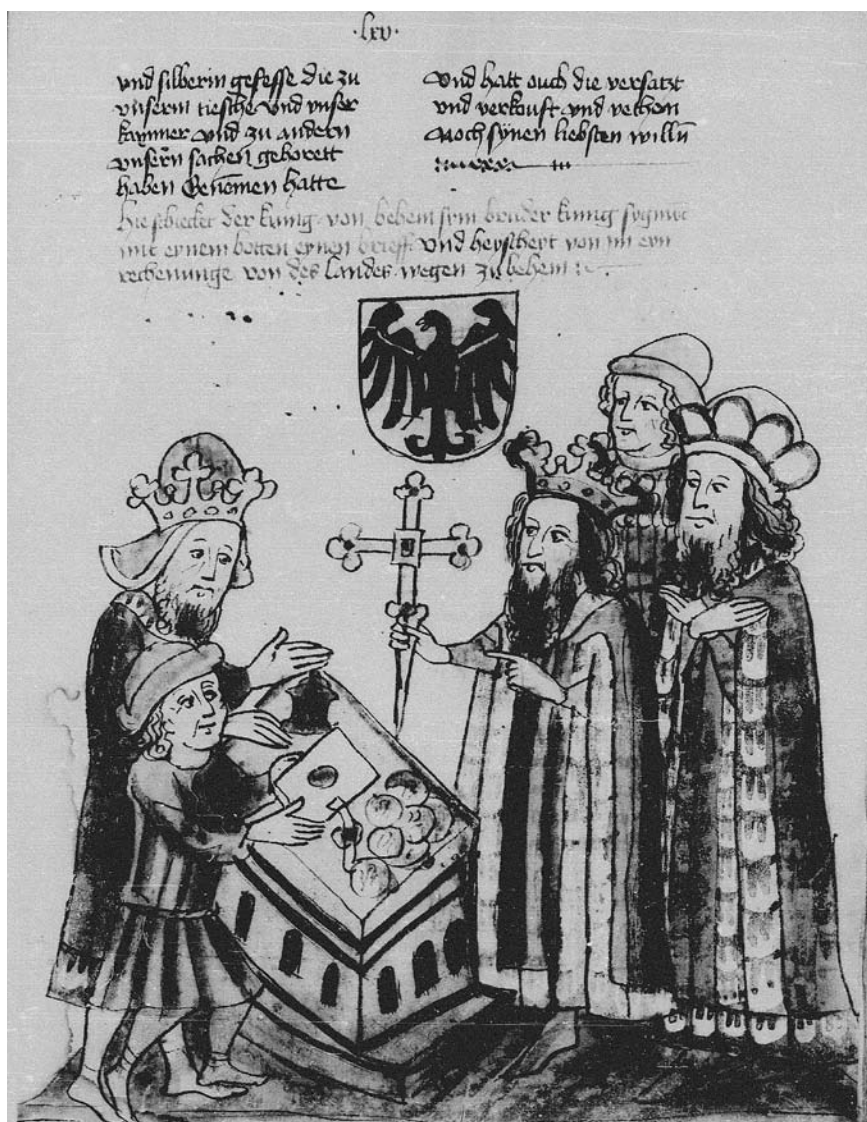 ·lxv·
und silberin gefesse die zu
unserm tiesche und unser
kammer und zu andern
unsern sachen gehorett
haben Genomen hatte
Und hatt ouch die versatzt
und verkouft und
Noch synen liebsten willn
Hie schicket der kunig von behem sym bruder kunig
mit eynem botten eynen brieff und heyschet von im eyn
rechenunge von des landes wegen zu behem